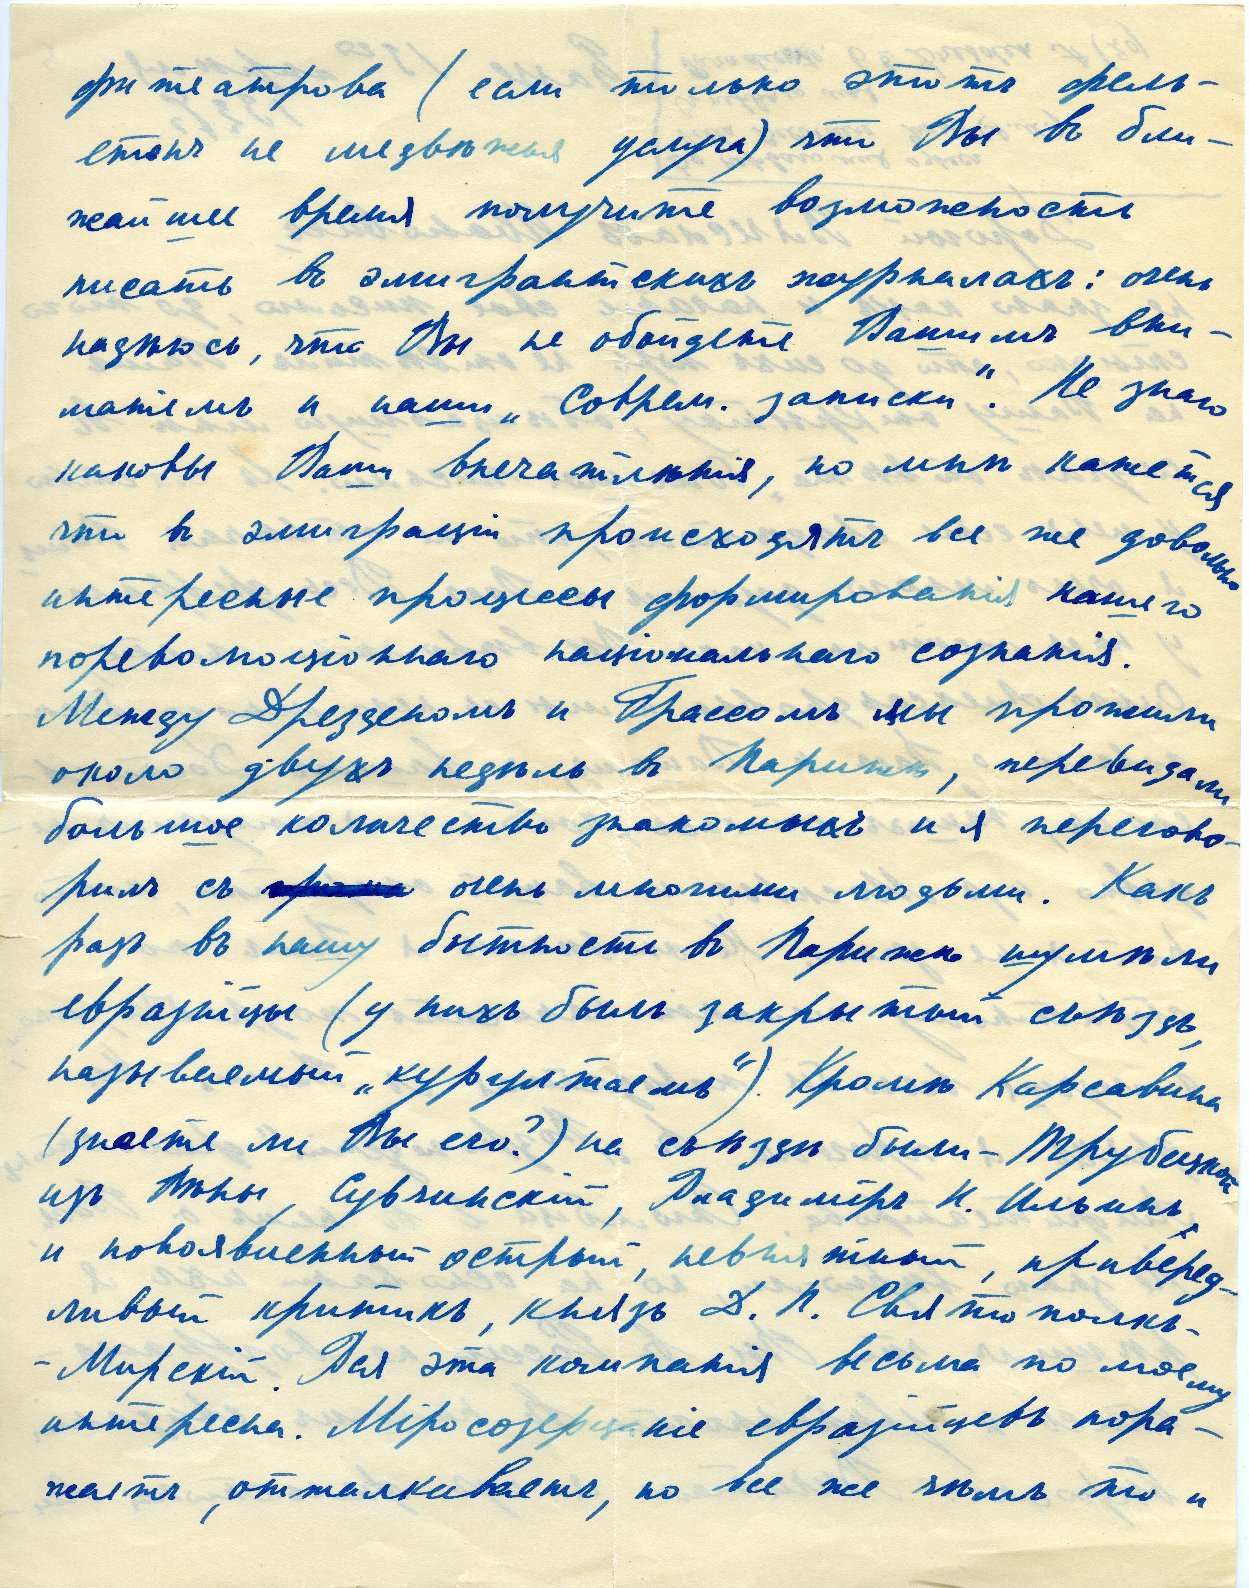 фитеатрова (если только этотъ фель-
етонъ не медвѣжья услуга) что Вы въ бли-
жайшее время получите возможность
писать въ эмигрантскихъ журналахъ: очень
надѣюсь, что Вы не обойдете Вашимъ вни-
маніемъ и наши „Соврем. записки“. Не знаю
каковы Ваши впечатлѣнія, но мнѣ кажется
что въ эмиграціи происходятъ все же довольно
интересные процессы формированія нашего
пореволюціоннаго національнаго сознанія.
Между Дрезденомъ и Грассомъ мы прожили
около двухъ недѣль въ Парижѣ, перевидали
большое количество знакомыхъ и я перегово-
рилъ съ очень многими людьми. Какъ
разъ въ нашу бытность въ Парижѣ шумѣли
евразійцы (у нихъ былъ закрытый съѣздъ,
называемый „курултаемъ“). Кромѣ Карсавина
(знаете ли Вы его?) на съѣздѣ были – Трубецкой
изъ Вѣны, Сувчинскій, Владиміръ Н. Ильинъ
и новоявленный острый, невнятный, привѐред-
ливый критикъ, князь Д. П. Святополкъ-
-Мирскій. Вся эта компанія весьма по моему
интересна. Міросозерцаніе евразійцевъ пора-
жаетъ, отталкиваетъ, но все же чѣмъ то и